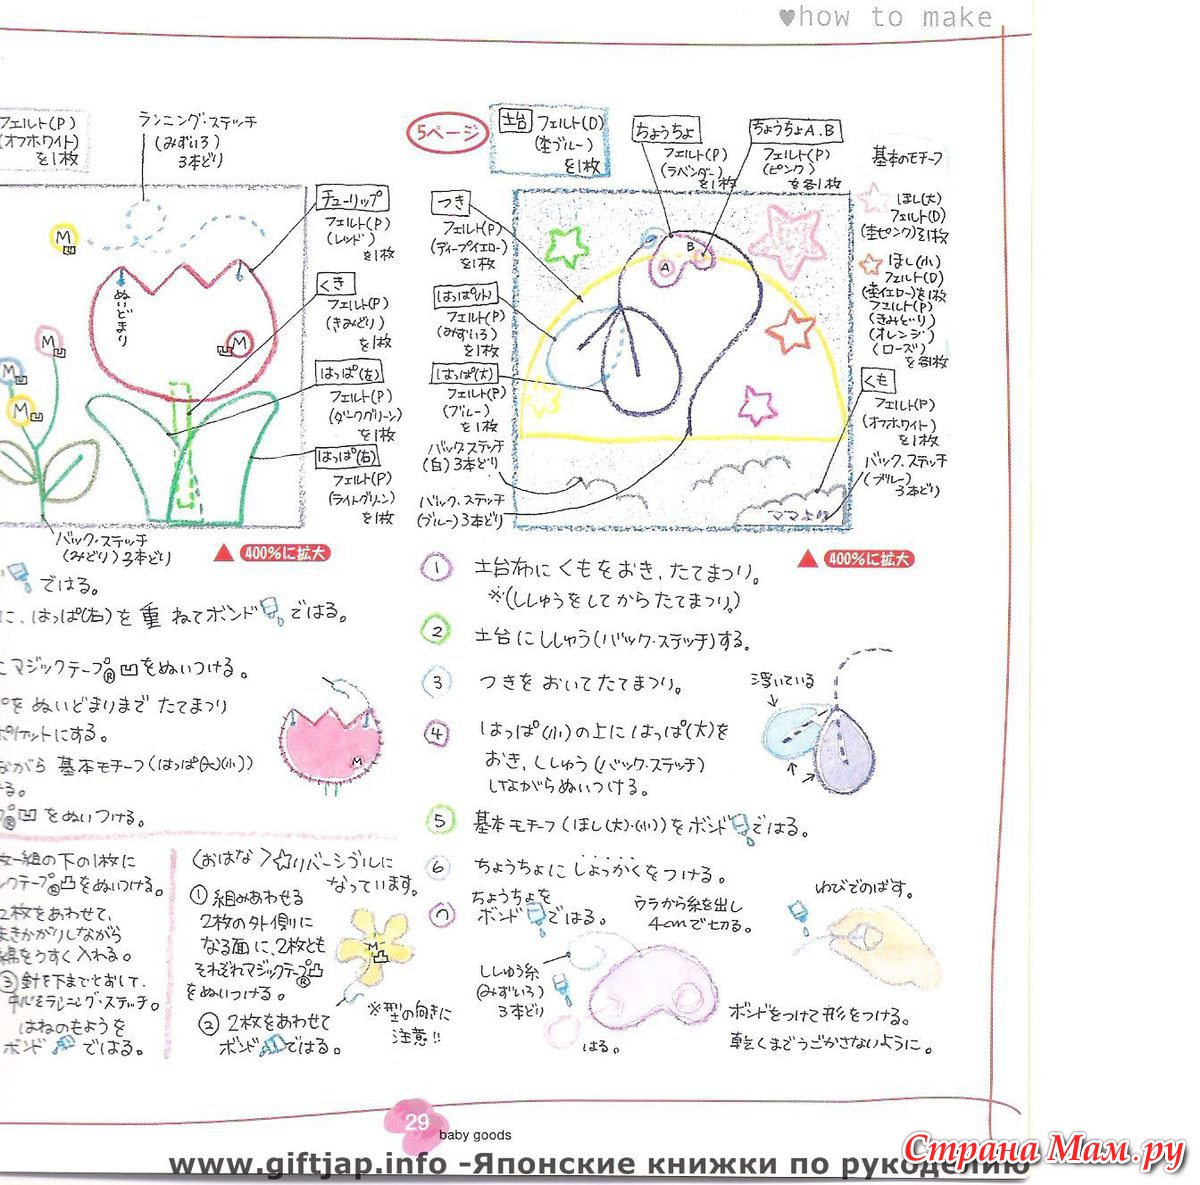 ♥how to make
フェルト(P)
(オフホワイト)
を1枚
ランニング・ステッチ
(みずいろ)
3本どり
チューリップ
フェルト(P)
(レッド)
を1枚
くき
フェルト(P)
(きみどり)
を1枚
はっぱ(左)
フェルト(P)
(ダークグリーン)
を1枚
はっぱ(右)
フェルト(P)
(ライトグリーン)
を1枚
M
M
M
M
M
ぬいどまり
バック・ステッチ
(みどり)2本どり
▲400%に拡大
ではる。
に、はっぱ(右)を重ねてボンドではる。
マジックテープ®凹をぬいつける。
をぬいどまりまでたてまつり
ポケットにする。
ながら 基本モチーフ(はっぱ(大)(小))
る。
®凹をぬいつける。
M
一組の下の1枚に
ックテープ®凸をぬいつける。
2枚をあわせて、
まきかがりしながら
綿をうすく入れる。
③針を下までとおして、
中心をランニング・ステッチ。
はねのもようを
ボンドではる。
〈おはな〉☆リバーシブルに
なっています。
①組みあわせる
2枚の外側に
なる面に、2枚とも
それぞれマジックテープ®凸
をぬいつける。
②2枚をあわせて
ボンドではる。
M
凸
※型の向きに
注意!!
5ページ
土台 フェルト(D)
(杢ブルー)
を1枚
ちょうちょ
フェルト(P)
(ラベンダー)
を1枚
ちょうちょA.B
フェルト(P)
(ピンク)
を各1枚
基本のモチーフ
ほし(大)
フェルト(D)
(杢ピンク)を1枚
ほし(小)
フェルト(D)
(杢イエロー)を1枚
フェルト(P)
(きみどり)
(オレンジ)
(ローズ)
を各1枚
つき
フェルト(P)
(ディープイエロー)
を1枚
はっぱ(小)
フェルト(P)
(みずいろ)
を1枚
はっぱ(大)
フェルト(P)
(ブルー)
を1枚
バック・ステッチ
(白)3本どり
バック・ステッチ
(ブルー)3本どり
A
B
くも
フェルト(P)
(オフホワイト)
を1枚
バック・ステッチ
(ブルー)
3本どり
ママより
▲400%に拡大
① 土台布にくもをおき、たてまつり。
※(ししゅうをしてからたてまつり。)
② 土台にししゅう(バック・ステッチ)する。
③ つきをおいてたてまつり。
④ はっぱ(小)の上にはっぱ(大)を
おき、ししゅう(バック・ステッチ)
しながらぬいつける。
浮いている
⑤ 基本モチーフ(ほし(大)・(小))をボンドではる。
⑥ ちょうちょにしょっかくをつける。
⑦ ちょうちょを
ボンドではる。
ウラから糸を出し
4cmで切る。
ゆびでのばす。
ししゅう糸
(みずいろ)
3本どり
はる。
ボンドをつけて形をつける。
乾くまでうごかさないように。
29
baby goods
www.giftjap.info -Японские книжки по рукоделию
Страна Мам.ру